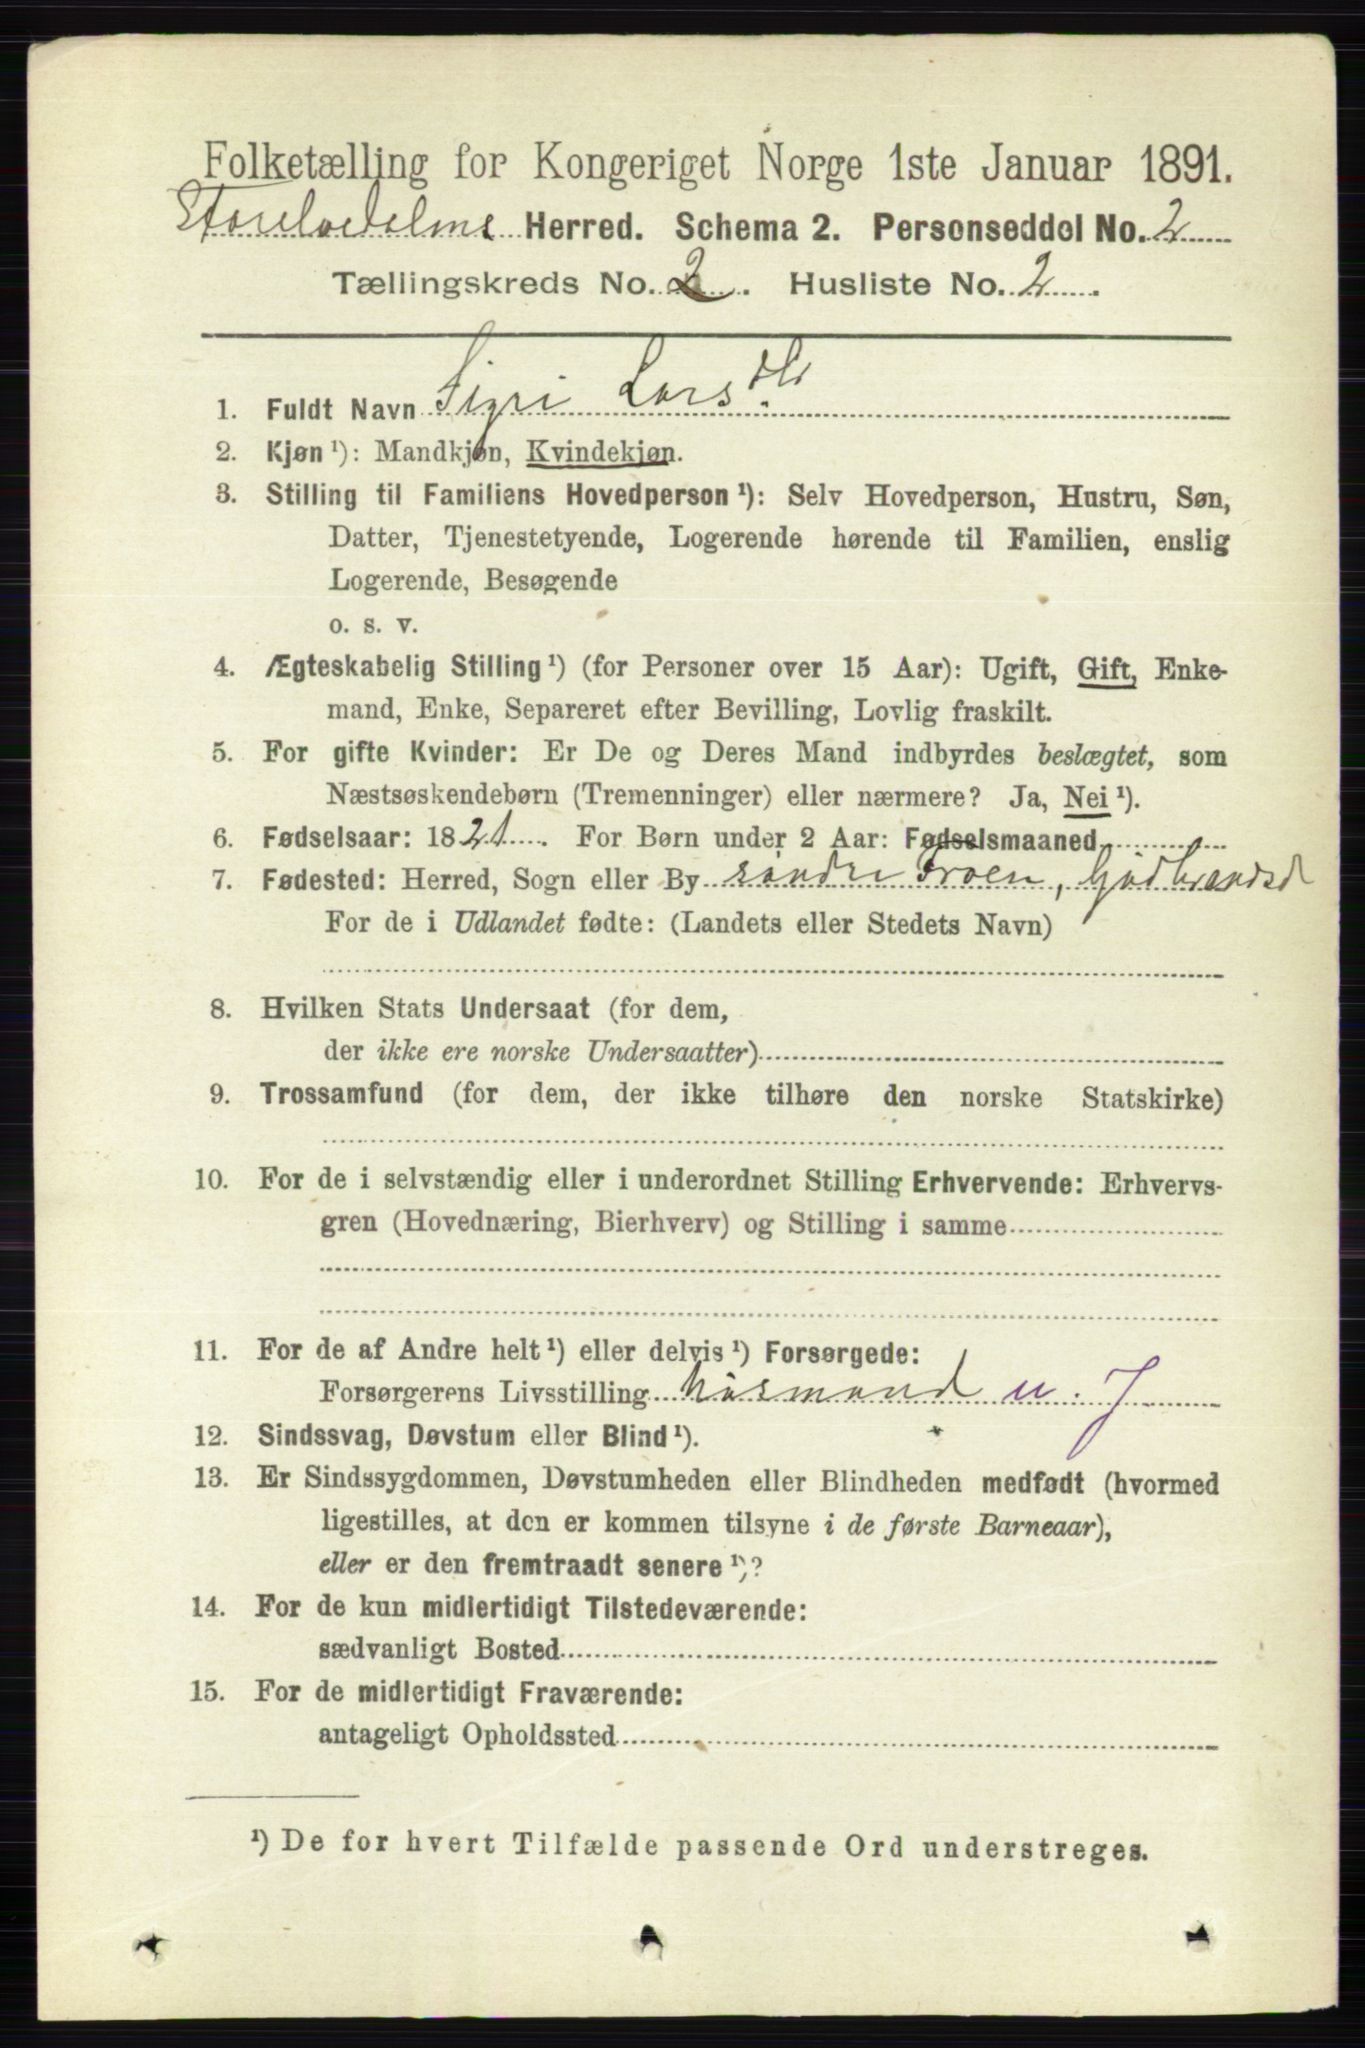 Folketælling for Kongeriget Norge 1ste Januar 1891.
Storelvedalens Herred. Schema 2. Personseddel No. 2
Tællingskreds No. 2. Husliste No. 2.
1. Fuldt Navn Sigri Larsdtr
2. Kjøn ¹): Mandkjøn, Kvindekjøn.
3. Stilling til Familiens Hovedperson ¹): Selv Hovedperson, Hustru, Søn,
Datter, Tjenestetyende, Logerende hørende til Familien, enslig
Logerende, Besøgende
o. s. v.
4. Ægteskabelig Stilling ¹) (for Personer over 15 Aar): Ugift, Gift, Enke-
mand, Enke, Separeret efter Bevilling, Lovlig fraskilt.
5. For gifte Kvinder: Er De og Deres Mand indbyrdes beslægtet, som
Næstsøskendebørn (Tremenninger) eller nærmere? Ja, Nei ¹).
6. Fødselsaar: 1821. For Børn under 2 Aar: Fødselsmaaned
7. Fødested: Herred, Sogn eller By søndre Froen, Gudbrandsd
For de i Udlandet fødte: (Landets eller Stedets Navn)
8. Hvilken Stats Undersaat (for dem,
der ikke ere norske Undersaatter)
9. Trossamfund (for dem, der ikke tilhøre den norske Statskirke)
10. For de i selvstændig eller i underordnet Stilling Erhvervende: Erhvervs-
gren (Hovednæring, Bierhverv) og Stilling i samme
11. For de af Andre helt ¹) eller delvis ¹) Forsørgede:
Forsørgerens Livsstilling Husmand u. J
12. Sindssvag, Døvstum eller Blind ¹).
13. Er Sindssygdommen, Døvstumheden eller Blindheden medfødt (hvormed
ligestilles, at den er kommen tilsyne i de første Barneaar),
eller er den fremtraadt senere ¹)?
14. For de kun midlertidigt Tilstedeværende:
sædvanligt Bosted
15. For de midlertidigt Fraværende:
antageligt Opholdssted
¹) De for hvert Tilfælde passende Ord understreges.